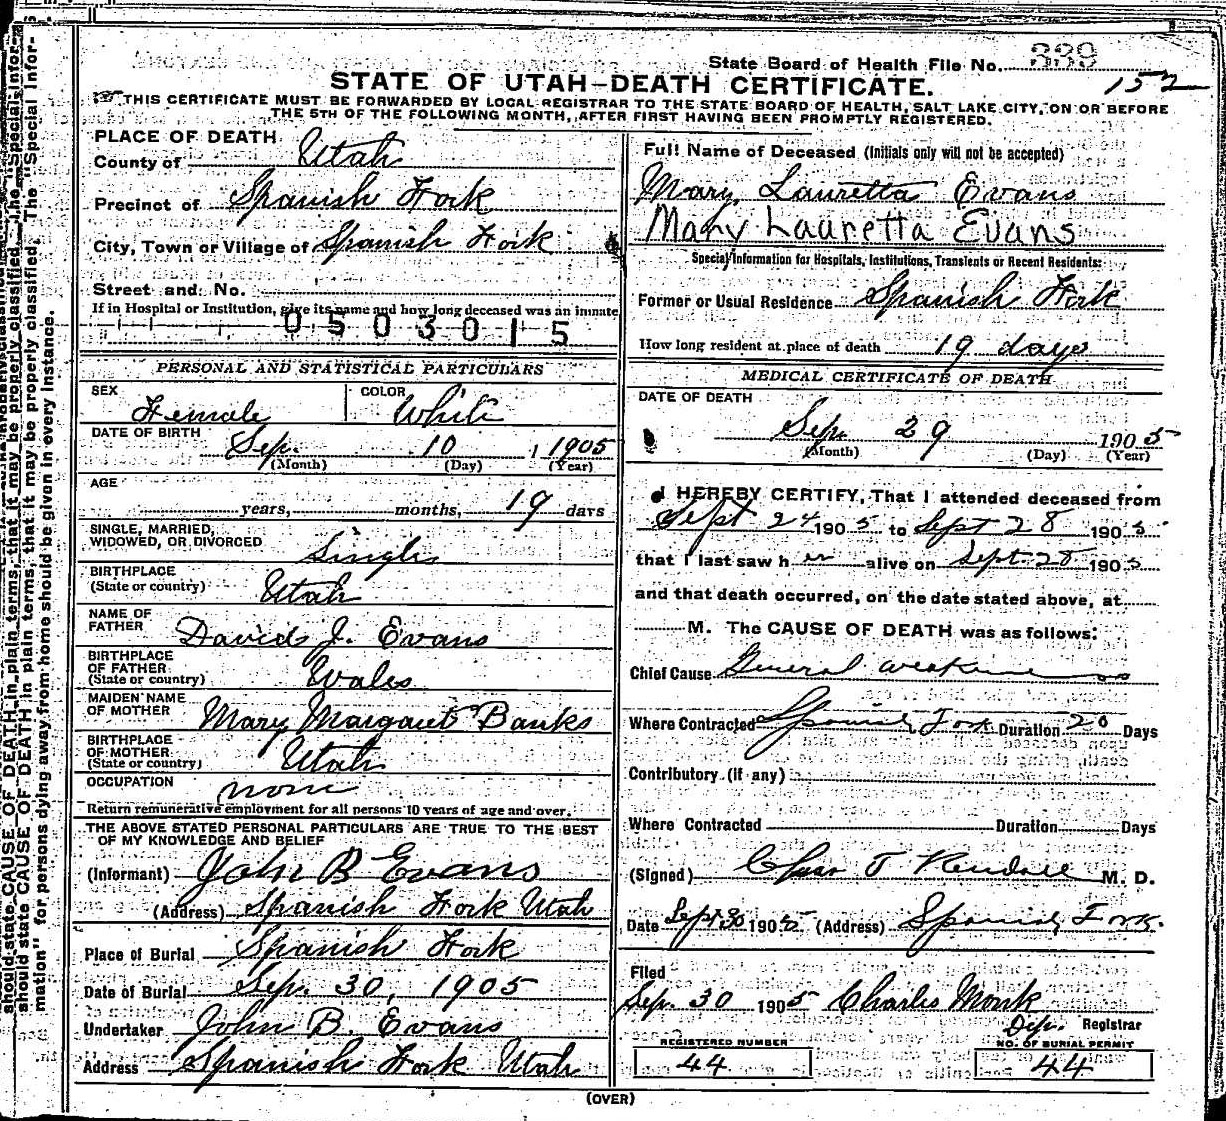 State Board of Health File No. 339
152
STATE OF UTAH—DEATH CERTIFICATE.
THIS CERTIFICATE MUST BE FORWARDED BY LOCAL REGISTRAR TO THE STATE BOARD OF HEALTH, SALT LAKE CITY, ON OR BEFORE
THE 5TH OF THE FOLLOWING MONTH, AFTER FIRST HAVING BEEN PROMPTLY REGISTERED.
PLACE OF DEATH
County of Utah
Precinct of Spanish Fork
City, Town or Village of Spanish Fork
Street and No.
If in Hospital or Institution, give its name and how long deceased was an inmate
0503015
PERSONAL AND STATISTICAL PARTICULARS
SEX Female COLOR White
DATE OF BIRTH Sep. 10, 1905
(Month) (Day) (Year)
AGE
years, months, 19 days
SINGLE, MARRIED,
WIDOWED, OR DIVORCED Single
BIRTHPLACE
(State or country) Utah
NAME OF
FATHER David J. Evans
BIRTHPLACE
OF FATHER
(State or country) Wales
MAIDEN NAME
OF MOTHER Mary Margaret Banks
BIRTHPLACE
OF MOTHER
(State or country) Utah
OCCUPATION none
Return remunerative employment for all persons 10 years of age and over.
THE ABOVE STATED PERSONAL PARTICULARS ARE TRUE TO THE BEST
OF MY KNOWLEDGE AND BELIEF
(Informant) John B Evans
(Address) Spanish Fork Utah
Place of Burial Spanish Fork
Date of Burial Sep. 30, 1905
Undertaker John B. Evans
Address Spanish Fork Utah
Full Name of Deceased (Initials only will not be accepted)
Mary Lauretta Evans
Mary Lauretta Evans
Special Information for Hospitals, Institutions, Transients or Recent Residents:
Former or Usual Residence Spanish Fork
How long resident at place of death 19 days
MEDICAL CERTIFICATE OF DEATH
DATE OF DEATH
Sep. 29 1905
(Month) (Day) (Year)
I HEREBY CERTIFY, That I attended deceased from
Sept 24 1905 to Sept 28 1905
that I last saw her alive on Sept 28 1905
and that death occurred, on the date stated above, at
M. The CAUSE OF DEATH was as follows:
Chief Cause General weakness
Where Contracted Spanish Fork Duration 20 Days
Contributory (if any)
Where Contracted Duration Days
(Signed) Chas T Kendall M. D.
Date Sept 30 1905 (Address) Spanish Fork.
Filed
Sep. 30 1905 Charles Monk
Dep. Registrar
REGISTERED NUMBER
44
NO. OF BURIAL PERMIT
44
(OVER)
should state CAUSE OF DEATH in plain terms, that it may be properly classified. The "Special Infor-
mation" for persons dying away from home should be given in every instance.